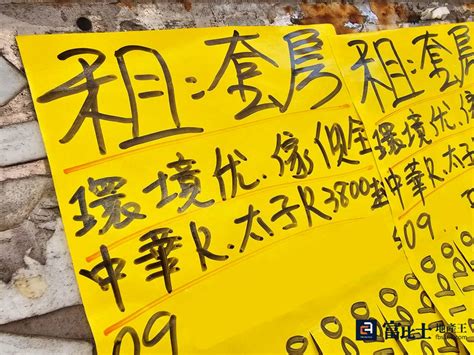 租:套房
環境优.傢俱全
中華R.太子R3800起
09
租:套房
環境优.傢
中華R.太子R
09
富比士 地產王